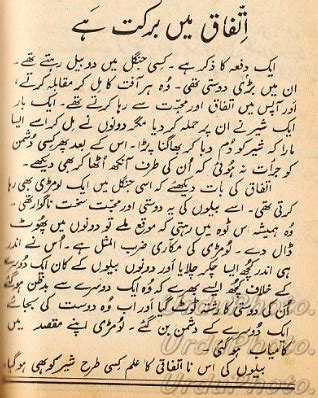 اِتّفاق میں برکت ہَے
ایک دفعہ کا ذکر ہے۔ کسی جنگل میں دو بیل رہتے تھے۔
ان میں بڑی دوستی تھی۔ وُہ ہر آفت کا مل کر مقابلہ کرتے،
اَور آپس میں اتفاق اور محبّت سے رہا کرتے تھے۔ ایک بار
ایک شیر نے ان پر حملہ کر دیا مگر دونوں نے مل کر اسے ایسا
مارا کہ شیر کو دُم دبا کر بھاگنا پڑا۔ اس کے بعد پھر کسی دُشمن
کو جرأت نہ ہُوئی کہ اُن کی طرف آنکھ اُٹھا کر بھی دیکھے۔
اتفاق کی بات دیکھئے کہ اسی جنگل میں ایک لومڑی بھی رہا
کرتی تھی۔ اسے بیلوں کی یہ دوستی اور محبّت سخت ناگوار تھی۔
وُہ ہمیشہ اس ٹوہ میں رہتی کہ موقع ملے تو دونوں میں پھُوٹ
ڈال دے۔ لومڑی کی مکّاری ضرب المثل ہے۔ اُس نے اندر
ہی اندر کچھ ایسا چکر چلایا اَور دونوں بیلوں کے کان ایک دوسرے
کے خلاف کچھ ایسے بھرے کہ وُہ ایک دوسرے سے بدظن ہو گئے
ان کی دوستی کا رشتہ ٹوٹ گیا اَور اب وُہ دوست کی بجائے
ایک دُوسرے کے دشمن بن گئے۔ لومڑی اپنے مقصد میں
کامیاب ہو گئی
بیلوں کی اس نااتفاقی کا علم کسی طرح شیر کو بھی ہو گیا۔
UrduPhoto.
UrduPhoto.
UrduPhoto.